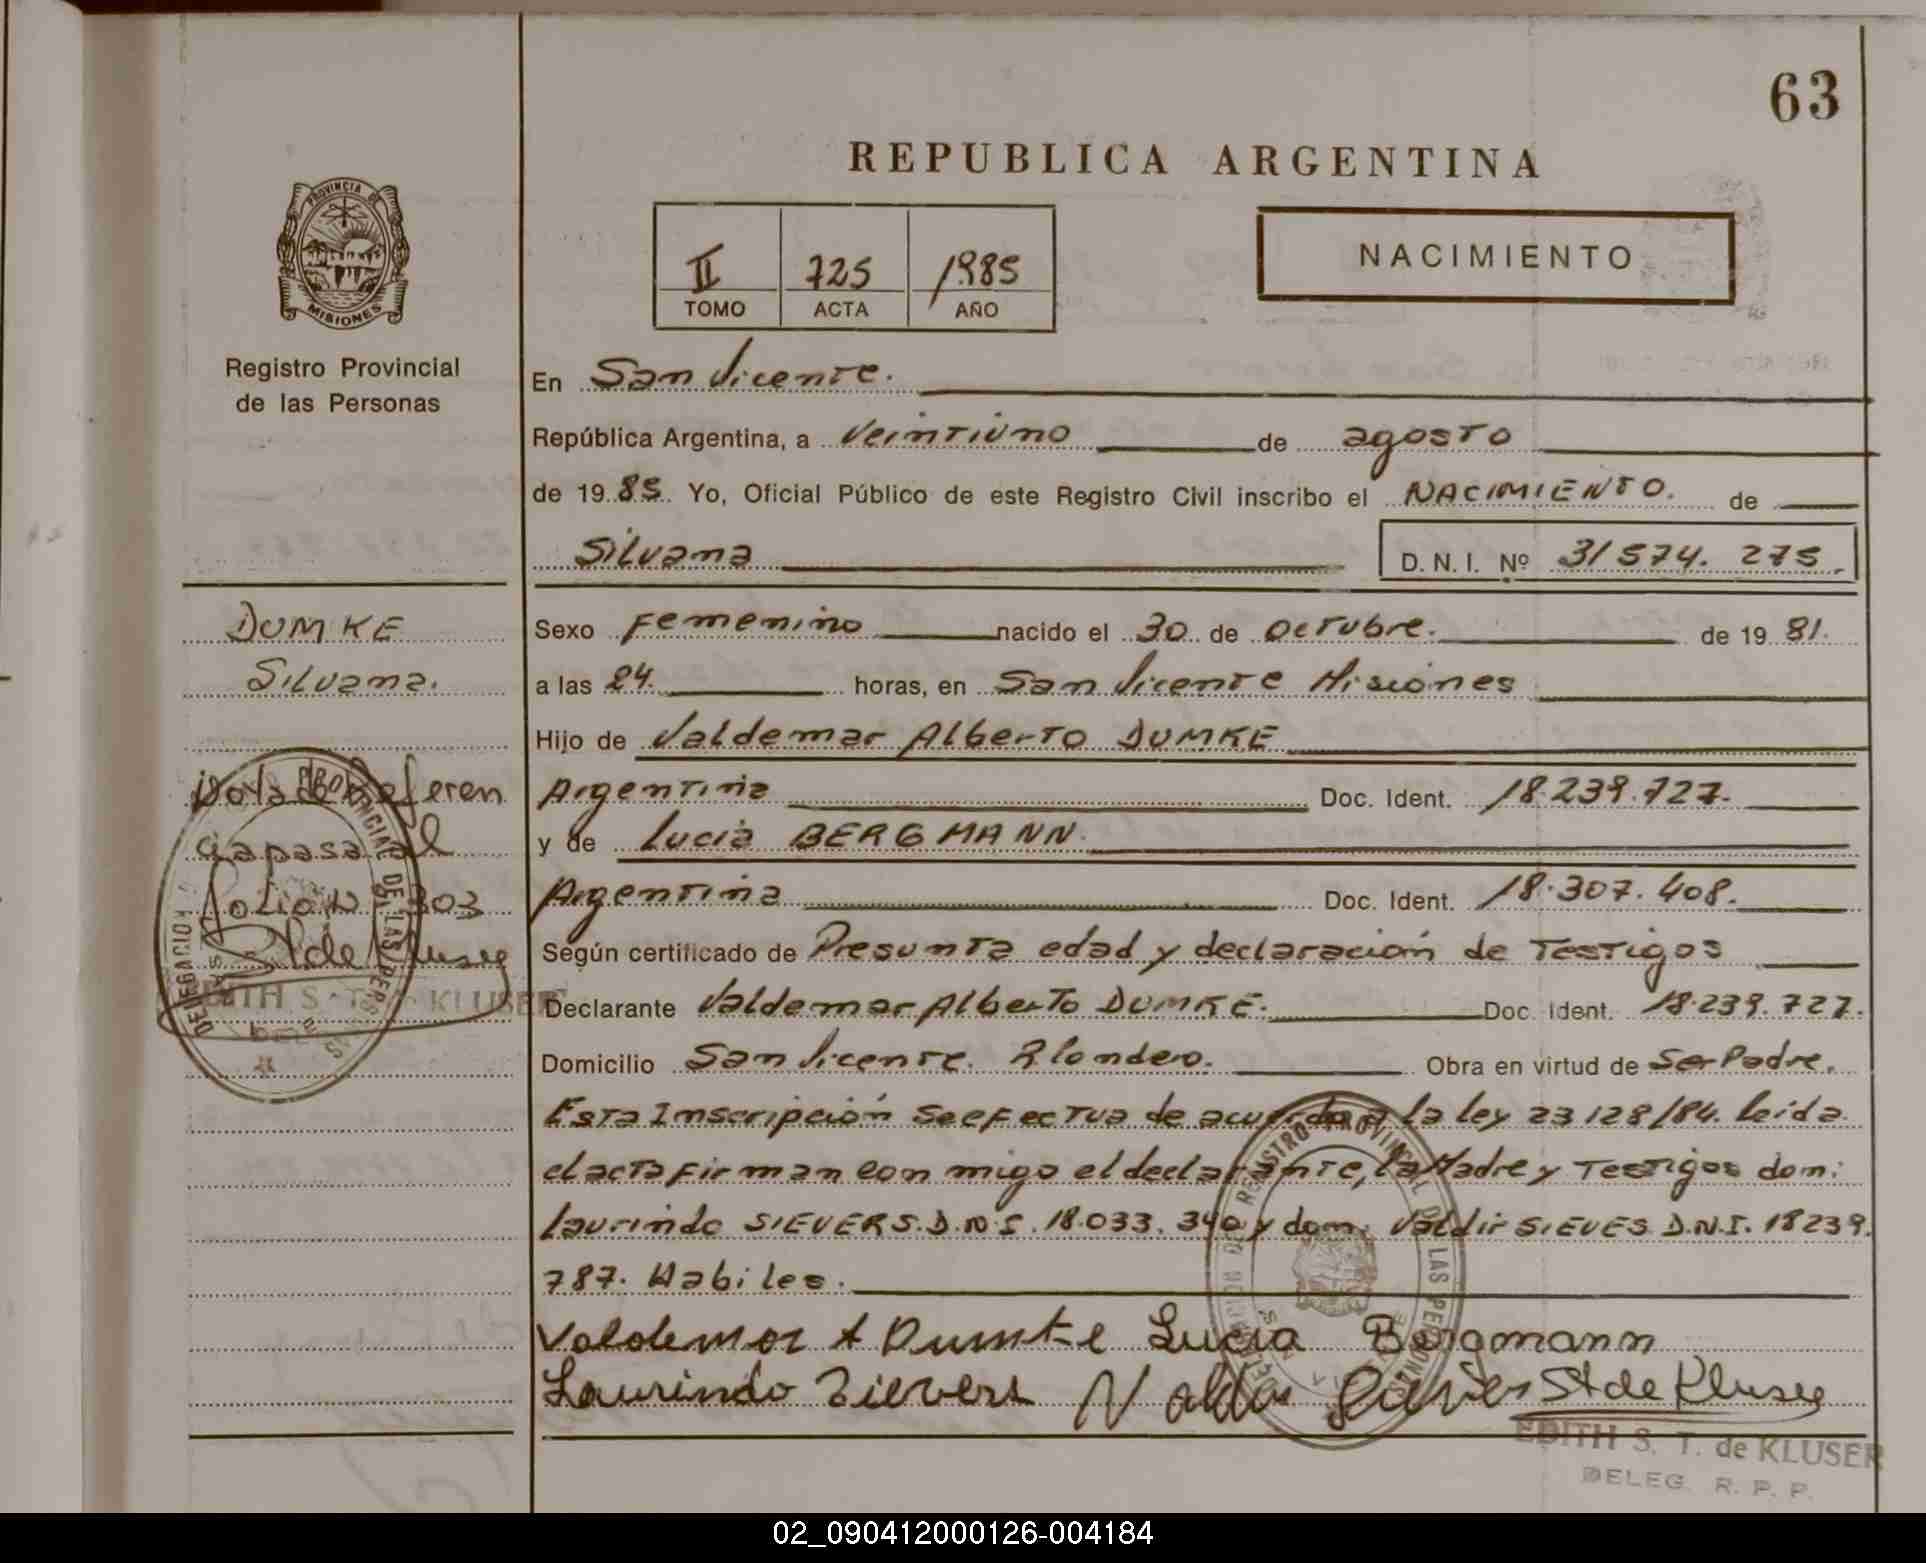 63
REPUBLICA ARGENTINA
PROVINCIA DE
MISIONES
Registro Provincial
de las Personas
II 725 1985
TOMO ACTA AÑO
NACIMIENTO
En San Vicente.
República Argentina, a Veintiuno de agosto
de 1985. Yo, Oficial Público de este Registro Civil inscribo el NACIMIENTO. de
Silvana D. N. I. Nº 31574.275.
DUMKE
Silvana.
Sexo Femenino nacido el 30 de octubre. de 1981.
a las 24. horas, en San Vicente Misiones
Hijo de Valdemar Alberto DUMKE
Argentina Doc. Ident. 18.239.727.
y de Lucia BERGMANN.
Argentina Doc. Ident. 18.307.408.
Según certificado de Presunta edad y declaración de Testigos
Declarante Valdemar Alberto DUMKE. Doc. Ident. 18.239.727.
Domicilio San Vicente. Obra en virtud de Ser Padre.
Esta Inscripción se efectua de acuerdo a la ley 23128/84. leida
el acta firman con migo el declarante, la Madre y Testigos don:
laurindo SIEVERS. D.N.I. 18.033.340 y don: Valdir SIEVES D.N.I. 18239.
787. Habiles.
Valdemar A Dumke Lucia Bergmann
Laurindo Sievers St de Kluser
EDITH S. T. de KLUSER
DELEG. R. P. P.
Nota de Referen
cia pasa al
Folio Nº 303
St de Kluser
EDITH S. T. de KLUSER
DELEGACION REGISTRO PROVINCIAL DE LAS PERSONAS
02_090412000126-004184